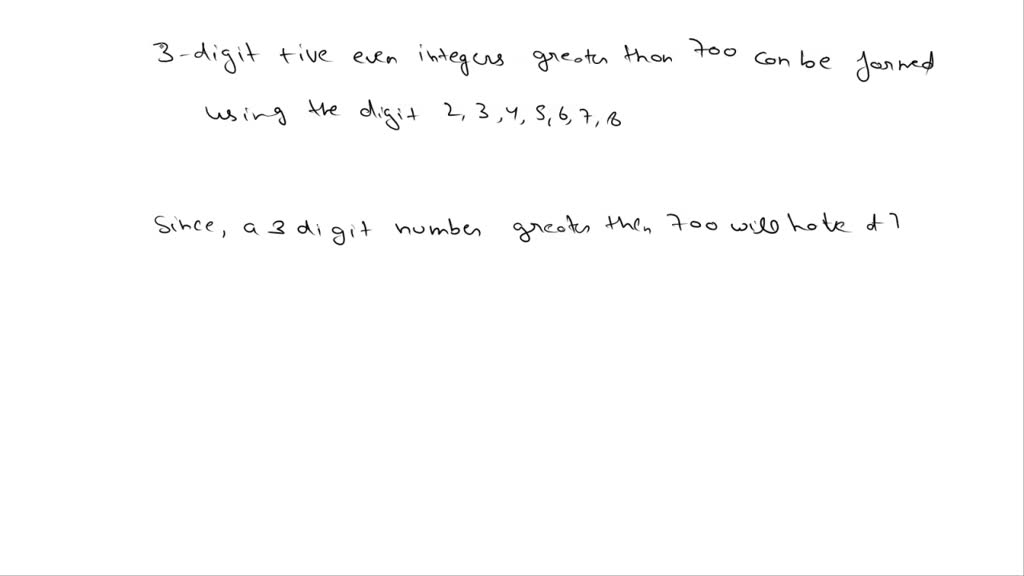 3-digit +ive even integers greater than 700 can be formed
using the digit 2, 3, 4, 5, 6, 7, 8
Since, a 3 digit number greater then 700 will